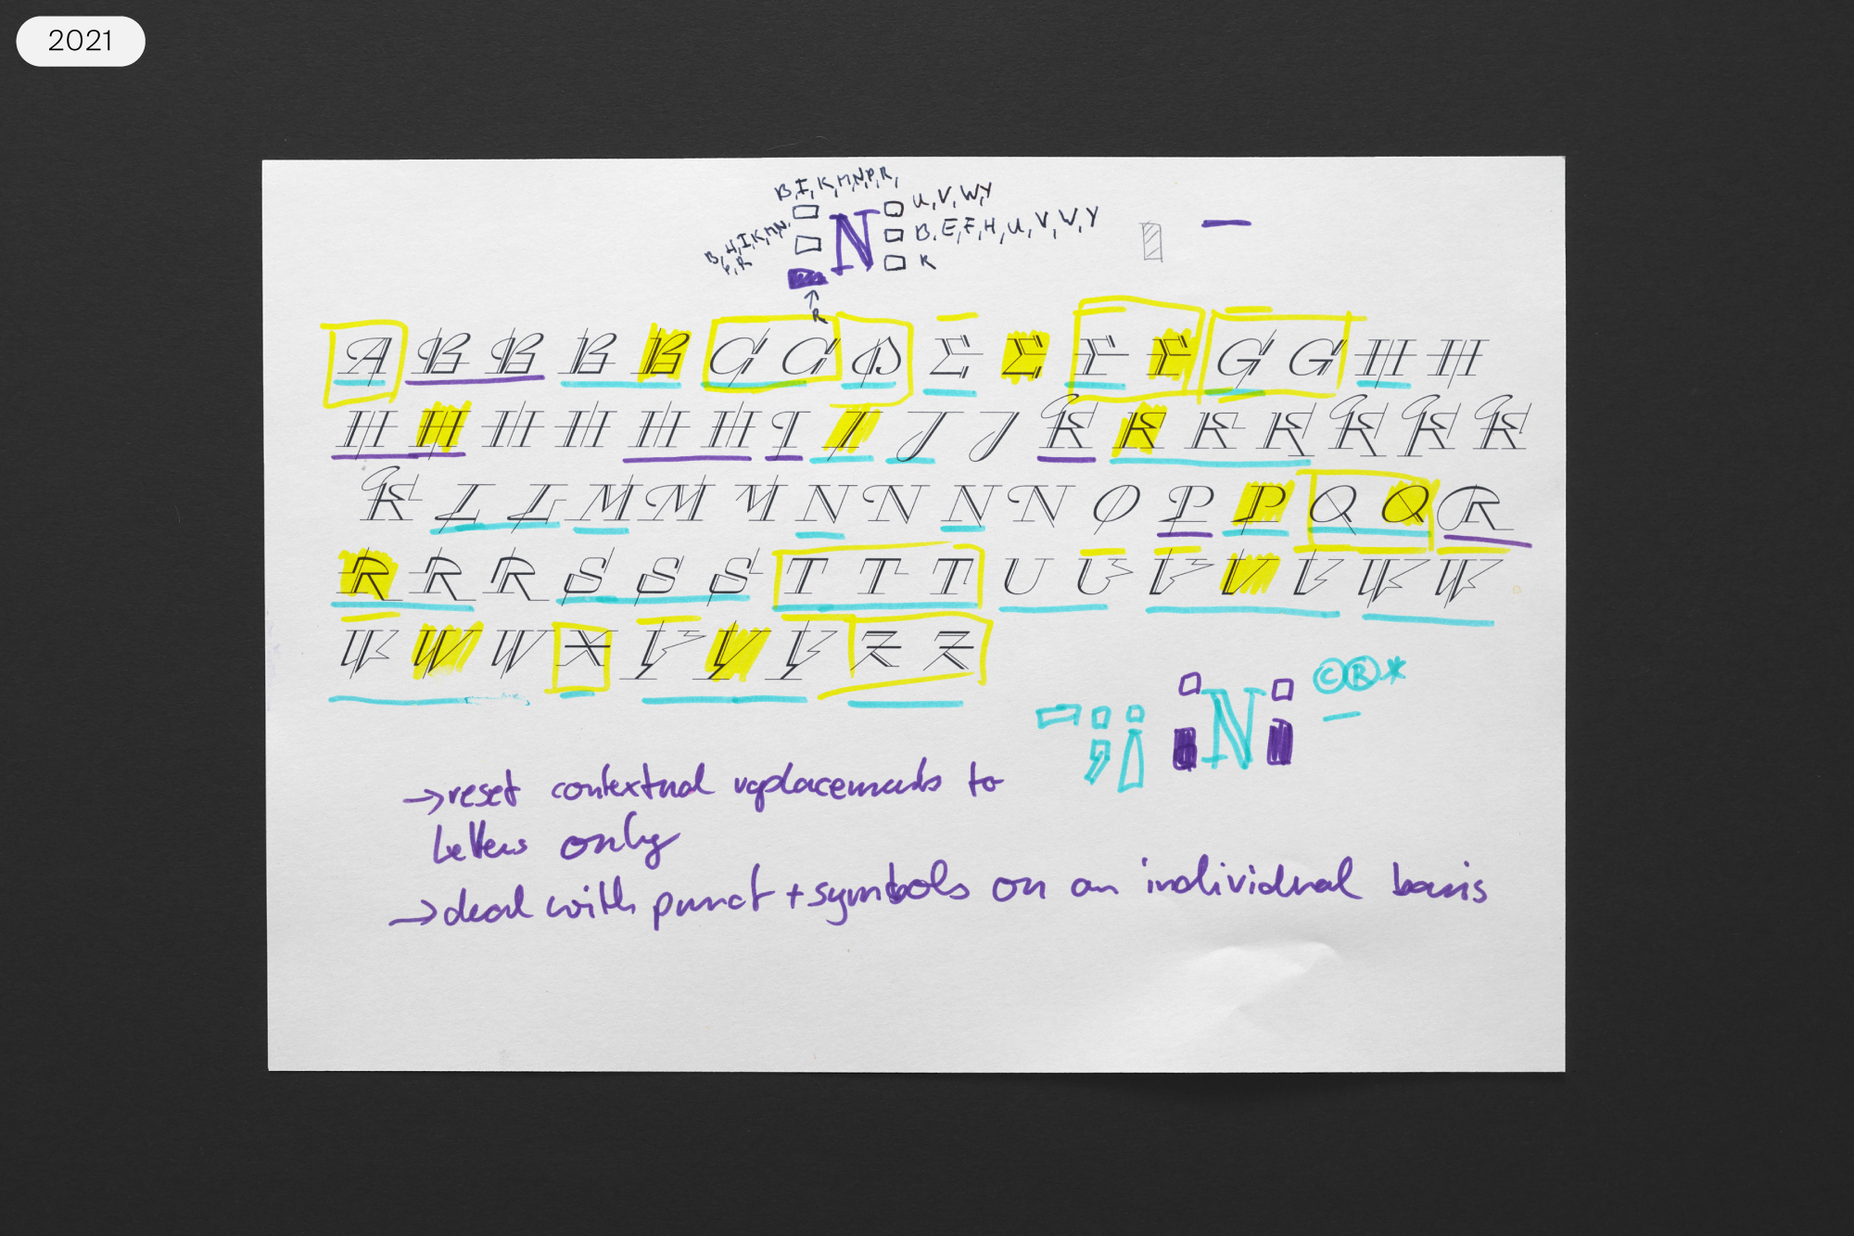 2021
B, I, K, M, N, P, R,
U, V, W, Y
B, H, I, K, M, N,
P, R
N
B, E, F, H, U, V, W, Y
R
R
A B B B B B C C D E E F F G G H H
H H H H H H I I J J K K K K K K K
K L L M M M N N N N O P P Q Q R
R R R S S S T T T U U V V V W W
W W W X Y Y Y Z Z
; N © ® *
→ reset contextual replacements to
letters only
→ deal with punct + symbols on an individual basis